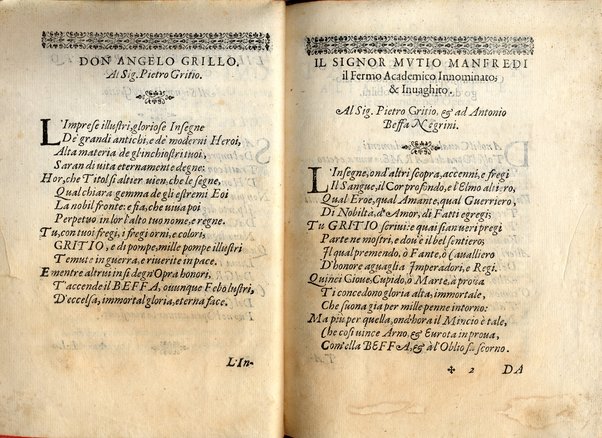 DON ANGELO GRILLO,
Al Sig. Pietro Gritio.
L'Imprese illustri, gloriose Insegne
De' grandi antichi, e de' moderni Heroi,
Alta materia de gl'inchiostri tuoi,
Saran di vita eternamente degne:
Hor, che Titol sì altier vien, che le segne,
Qual chiara gemma de gli estremi Eoi
La nobil fronte: e fia, che viua poi
Perpetuo in lor l'alto tuo nome, e regne.
Tu, con tuoi fregi, i fregi orni, e colori,
GRITIO, e di pompe, mille pompe illustri
Temute in guerra, e riuerite in pace.
E mentre altrui fai degn'Opra honori,
T'accende il BEFFA, ouunque Febo lustri,
D'eccelsa, immortal gloria, eterna face.
L'In-
IL SIGNOR MVTIO MANFREDI
il Fermo Academico Innominato,
& Inuaghito.
Al Sig. Pietro Gritio, & ad Antonio
Beffa Negrini.
L'Insegne, ond'altri scopra, accenni, e fregi
Il Sangue, il Cor profondo, e l'Elmo altiero,
Qual Eroe, qual Amante, qual Guerriero,
Di Nobiltà, d'Amor, di Fatti egregi;
Tu GRITIO scriui: e quai sian veri pregi
Parte ne mostri, e dou'è il bel sentiero,
Il qual premendo, ò Fante, ò Caualliero
D'honore aguaglia Imperadori, e Regi.
Quinci Gioue, Cupido, ò Marte, a proua
Ti concedono gloria alta, immortale,
Che suona già per mille penne intorno:
Ma più per quella, ond'hora il Mincio è tale,
(Che così vince Arno, & Eurota in proua,)
Com'ella BEFFA, & à l'Oblio fa scorno.
✠ 2 DA